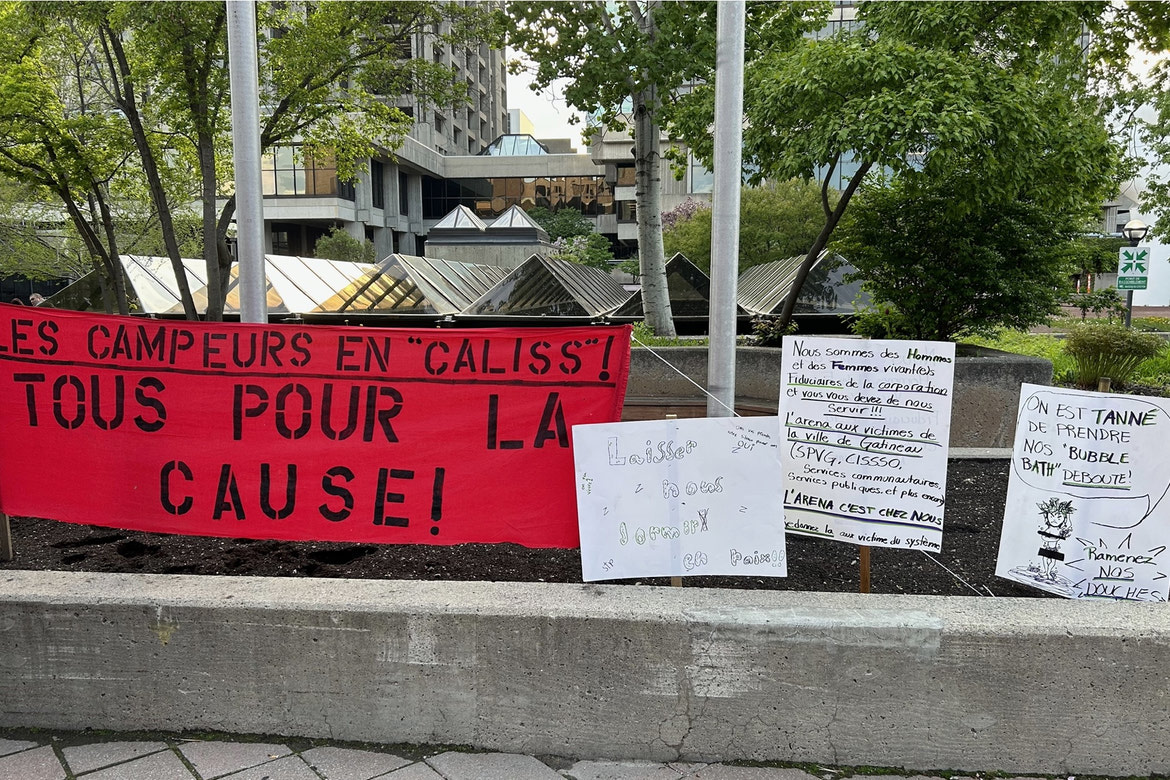 LES CAMPEURS EN "CALISS"!
TOUS POUR LA
CAUSE!
Laisser
nous
dormir
en paix!!
Nous sommes des Hommes
et des Femmes vivant(e)s
Fiduciaires de la corporation
et vous vous devez de nous
Servir!!!
L'arena aux victimes de
la ville de Gatineau
(SPVG, CISSSO,
Services communautaires,
Services publiques, et plus encore)
L'ARENA C'EST CHEZ NOUS
Redonnez la aux victime du système
ON EST TANNÉ
DE PRENDRE
NOS "BUBBLE
BATH" DEBOUTE!
Ramenez
NOS
DOUCHES